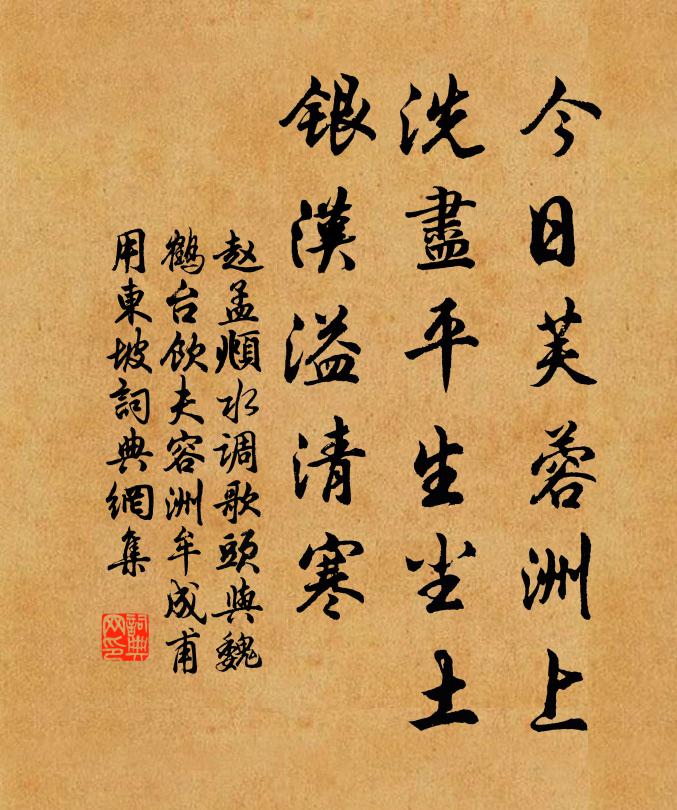 今日芙蓉洲上
洗盡平生尘土
银漢溢清寒
赵孟頫水调歌頭與魏
鶴台饮夫容洲牟成甫
用東坡詞典網集
詞典网印